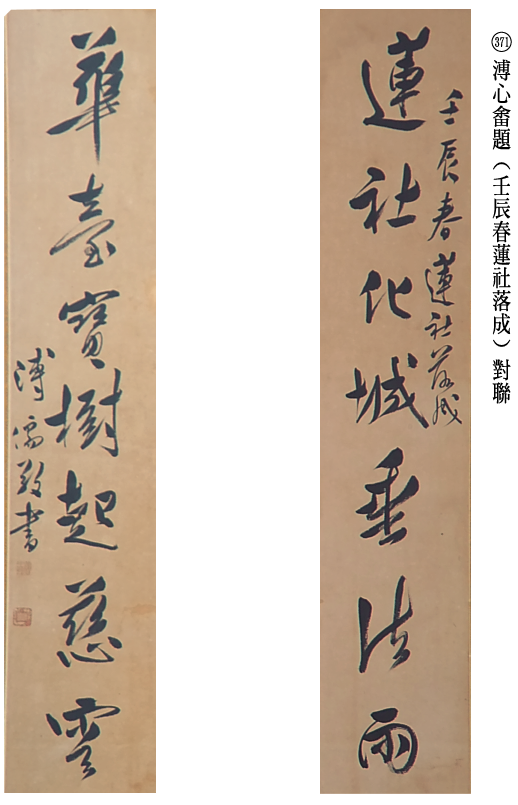 ㊲㊆㊀ 溥心畬題（壬辰春蓮社落成）對聯
壬辰春蓮社落成
蓮社化城垂法雨
華臺寶樹起慈雲
溥儒敬書